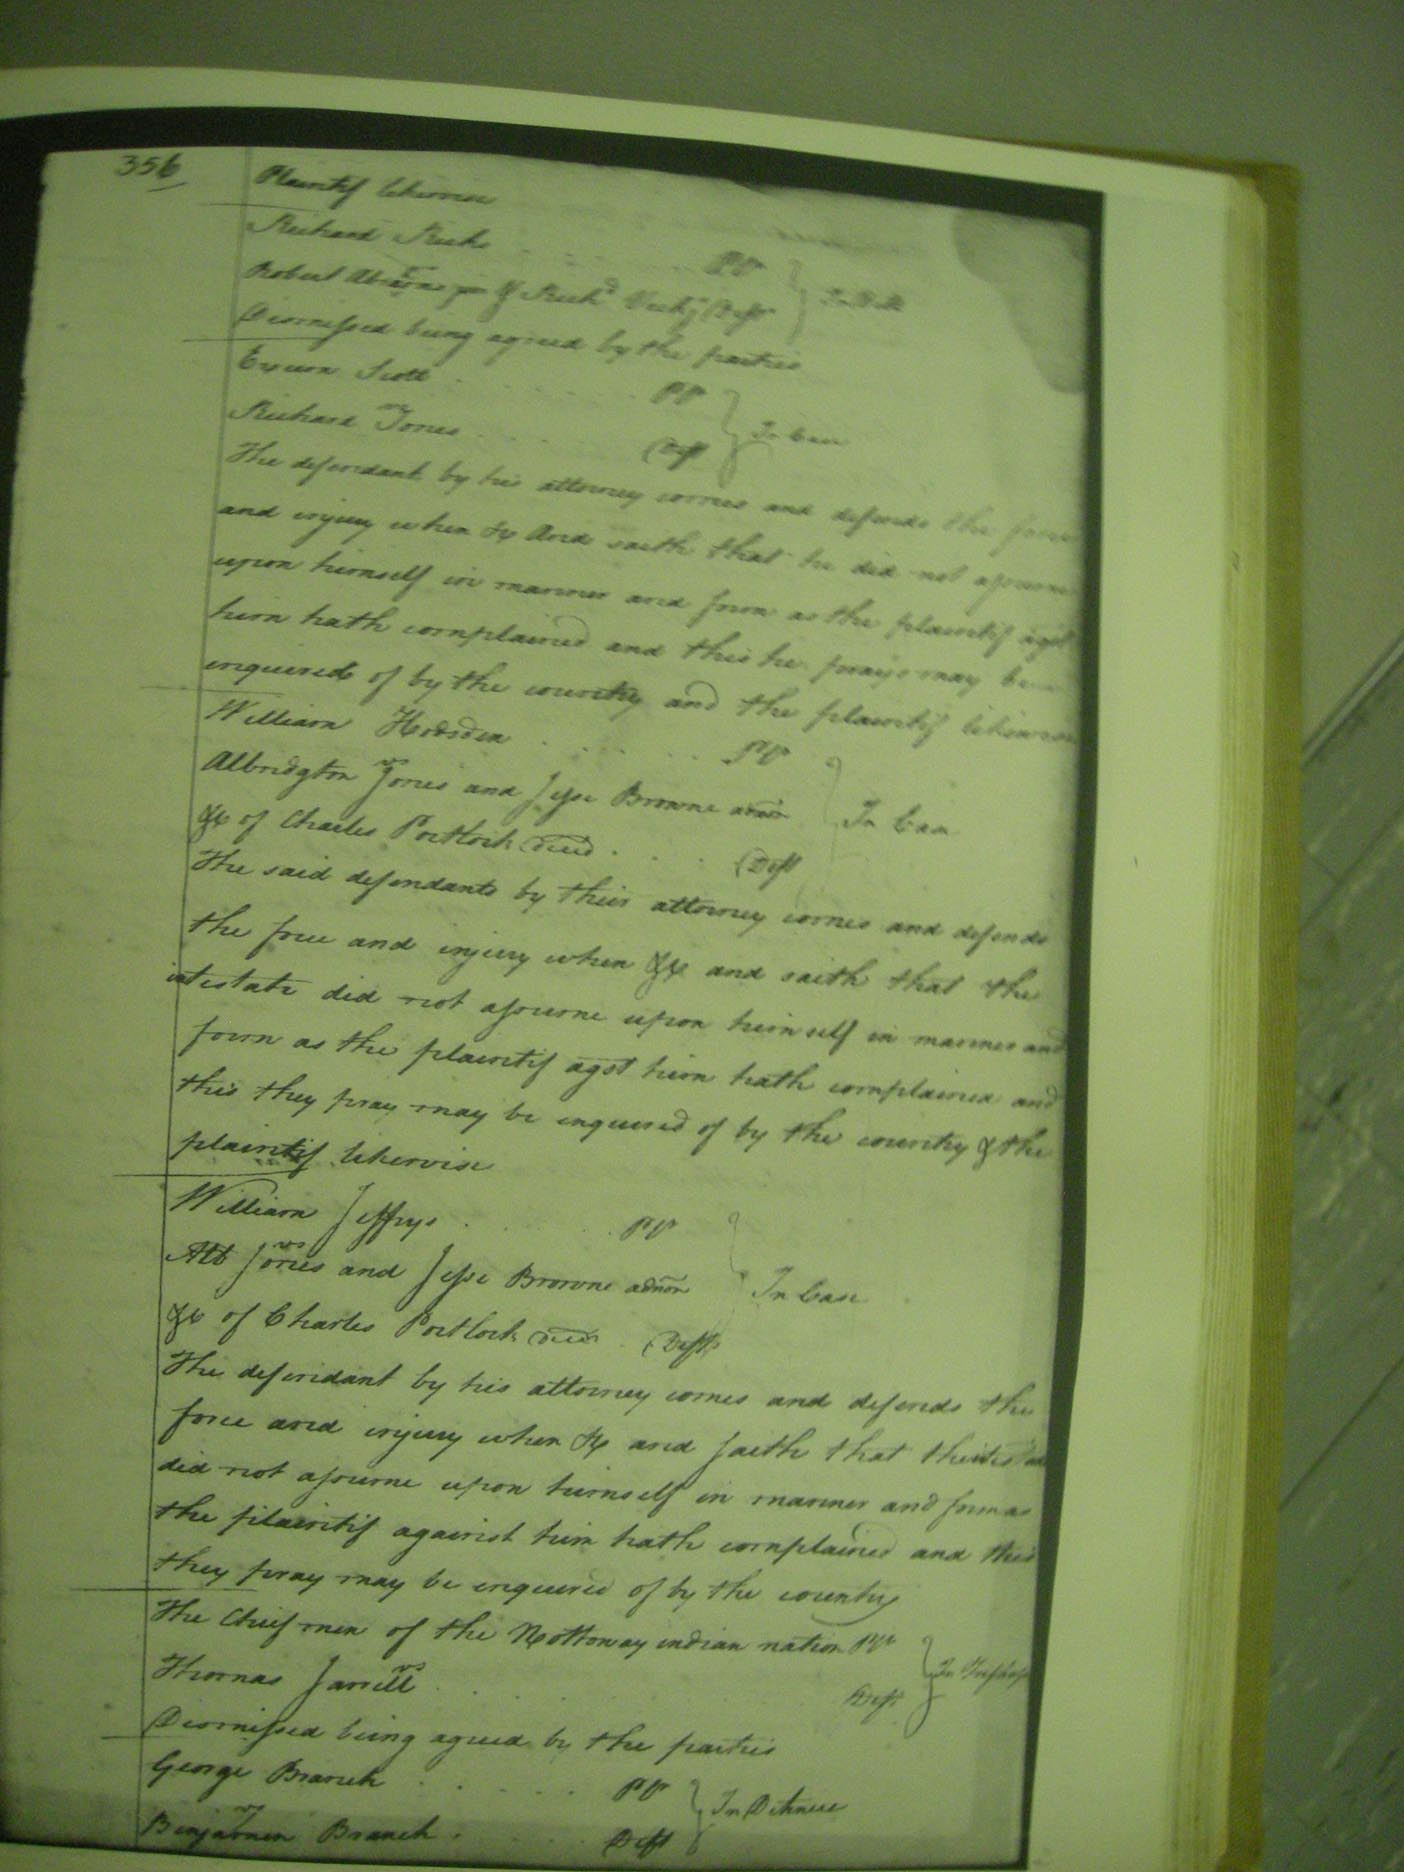 356
Plaintif likewise
Richard Ricks Plt
vs In Debt
Robert Abrams of Richd Deft
Dismissed being agreed by the parties
Exum Scott Plt
vs In Case
Richard Jones Deft
The defendant by his attorney comes and defends the force
and injury when &c And saith that he did not assume
upon himself in manner and form as the plaintif agst
him hath complained and this he prays may be
inquired of by the country and the plaintif likewise
William Hodsden Plt
vs
Albridgton Jones and Jesse Browne admor In Case
&c of Charles Portlock decd Deft
The said defendants by their attorney comes and defends
the force and injury when &c and saith that the
intestate did not assume upon himself in manner and
form as the plaintif agst him hath complained and
this they pray may be enquired of by the country & the
plaintif likewise
William Jeffrys Plt
vs
Alb Jones and Jesse Browne admor In Case
&c of Charles Portlock decd Defts
The defendant by his attorney comes and defends the
force and injury when &c and saith that the
did not assume upon himself in manner and form as
the plaintif against him hath complained and this
they pray may be enquired of by the country
The Chief men of the Nottoway indian nation Plt
vs In Trespass
Thomas Jarrell Deft
Dismissed being agreed by the parties
George Branch Plt
vs In Detinue
Benjamen Branch Deft